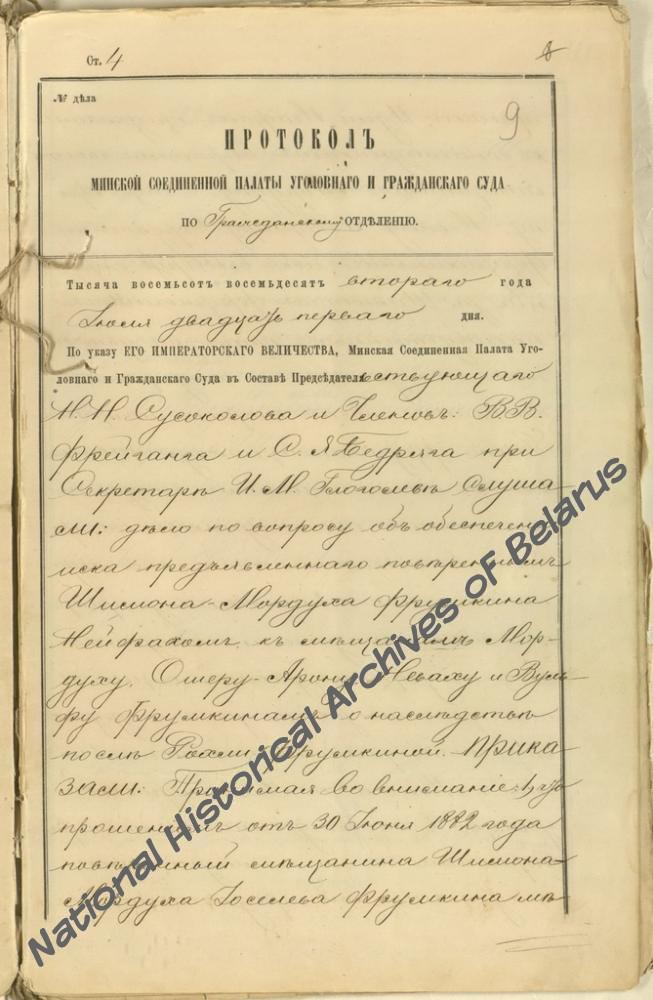 Ст. 4
№ дѣла
9
ПРОТОКОЛЪ
МИНСКОЙ СОЕДИНЕННОЙ ПАЛАТЫ УГОЛОВНАГО И ГРАЖДАНСКАГО СУДА
ПО Гражданскому ОТДѢЛЕНІЮ.
Тысяча восемьсотъ восемьдесятъ втораго года
Іюля двадцать перваго дня.
По указу ЕГО ИМПЕРАТОРСКАГО ВЕЛИЧЕСТВА, Минская Соединенная Палата Уго-
ловнаго и Гражданскаго Суда въ Составѣ Предсѣдательствующаго
Н. Н. Сусоколова и Членовъ: В. В.
Фрейганга и С. Я. Бедряга при
Секретарѣ И. М. Глоголевѣ Слуша
ли: дѣло по вопросу объ обеспечен.
иска предъявленнаго повѣреннымъ
Шимона-Мордуха Фрумкина
Нейфахомъ къ мѣщанамъ Мор-
духу, Ошеру-Арону, Неваху и Вуль-
фу Фрумкинамъ о наслѣдствѣ
послѣ Рохли Фрумкиной. Прика
зали: Принимая во вниманіе: 1, что
прошеніемъ отъ 30 Іюня 1882 года
повѣренный мѣщанина Шимона-
Мордуха Іоселева Фрумкина мѣ
National Historical Archives of Belarus